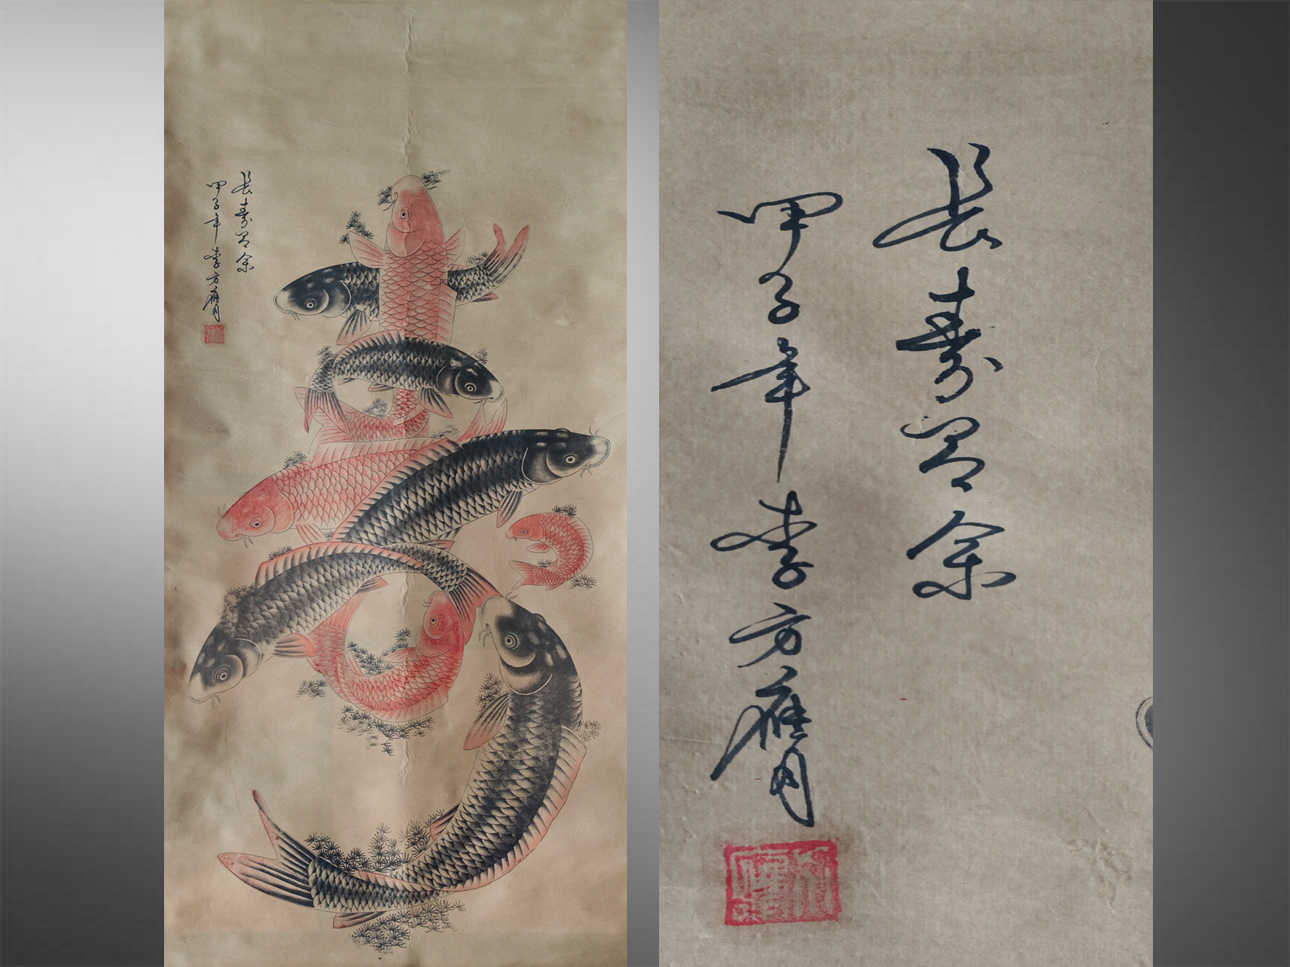 長寿余
甲子年李方膺
長寿余
甲子年李方膺